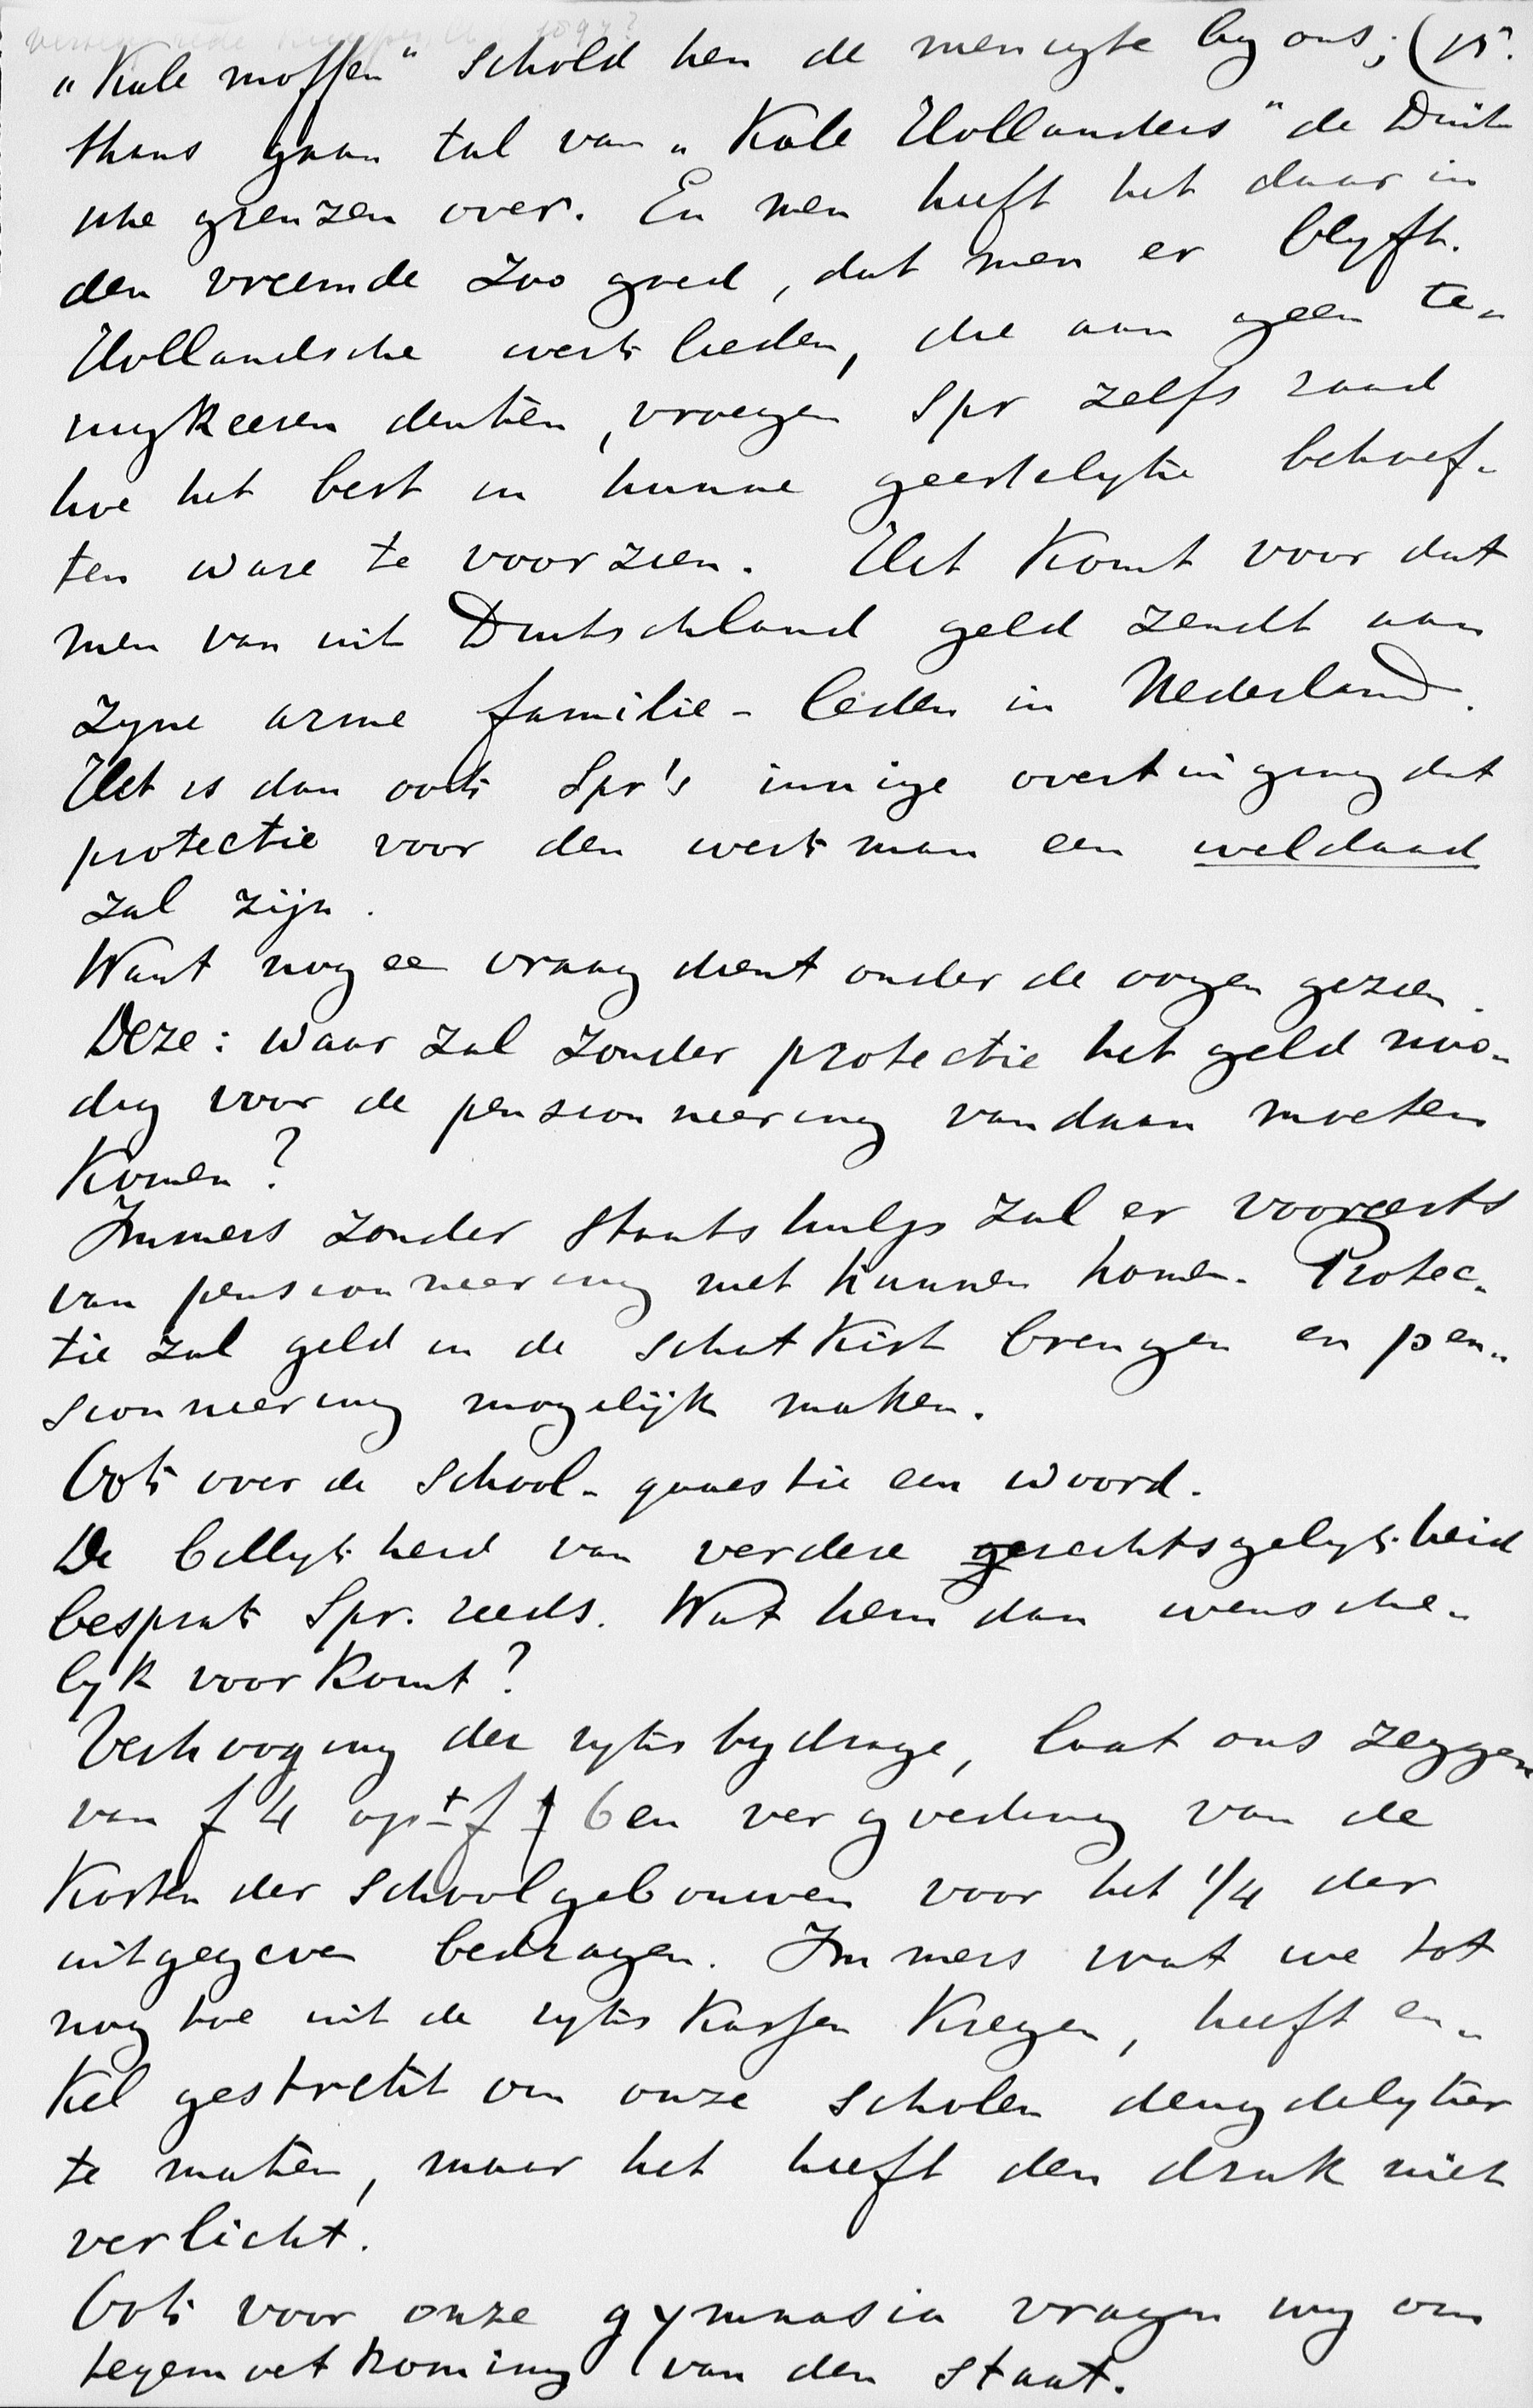 „Kale moffen" schold hen de menigte by ons; (15.
thans gaan tal van „Kale Hollanders" de Duit
sche grenzen over. En men heeft het daar in
den vreemde zoo goed, dat men er blyft.
Hollandsche werklieden, die aan geen te„
rugkeeren denken, vroegen Spr zelfs raad
hoe het best in hunne geestelyke behoef„
ten ware te voorzien. Het komt voor dat
men van uit Duitschland geld zendt aan
zyne arme familie-leden in Nederland.
Het is dan ook Spr's innige overtuiging dat
protectie voor den werkman een weldaad
zal zijn.
Want nog ee vraag dient onder de oogen gezien.
Deze: waar zal zonder protectie het geld noo„
dig voor de pensionneering vandaan moeten
komen?
Immers zonder Staatshulp zal er voorgerts
van pensionneering niet kunnen komen. Protec„
tie zal geld in de schatkist brengen en pen„
sionneering mogelijk maken.
Ook over de school-quaestie een woord.
De billykheid van verdere gerechtsgelykheid
besprak Spr. reeds. Wat hem dan wensche„
lyk voorkomt?
Verhooging der ryksbydrage, laat ons zeggen
van f 4 op ± f 6 en vergoeding van de
Kosten der schoolgebouwen voor het 1/4 der
uitgegeven bedragen. Immers wat we tot
nog toe uit de ryks kassen kregen, heeft en„
kel gestrekt om onze scholen deugdelyker
te maken, maar het heeft den druk niet
verlicht.
Ook voor onze gymnasia vragen wy om
tegemoetkoming van den staat.